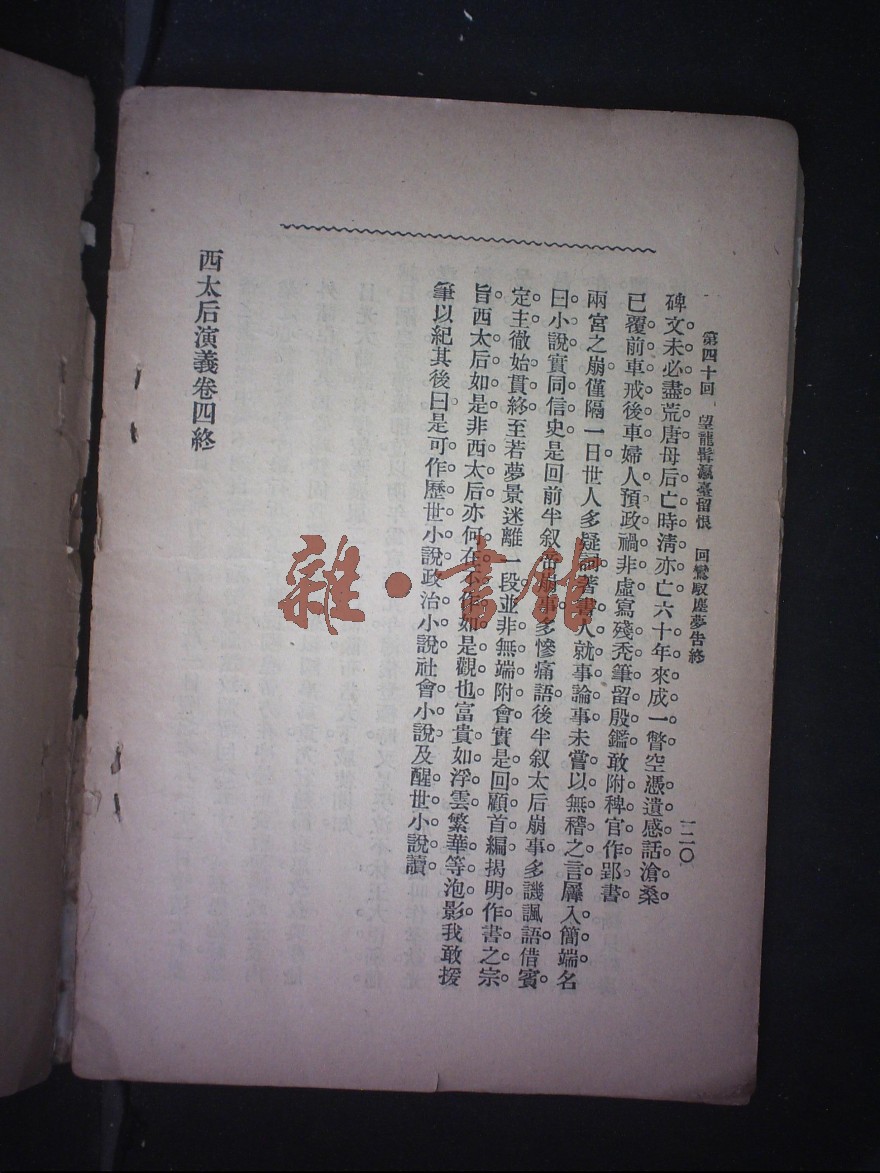 第四十回 望龍髯瀛臺留恨 回鸞馭塵夢告終 一二〇
碑文未必盡荒唐母后亡時淸亦亡六十年來成一瞥空憑遺感話滄桑
已覆前車戒後車婦人預政禍非虛寫殘禿筆留殷鑑敢附稗官作郢書
兩宮之崩僅隔一日世人多疑著書人就事論事未嘗以無稽之言羼入簡端名
曰小說實同信史是回前半叙帝崩事多慘痛語後半叙太后崩事多譏諷語借賓
定主徹始貫終至若夢景迷離一段並非無端附會實是回顧首編揭明作書之宗
旨西太后如是非西太后亦何在不作如是觀也富貴如浮雲繁華等泡影我敢援
筆以紀其後曰是可作歷世小說政治小說社會小說及醒世小說讀
西太后演義卷四終
雜·書館